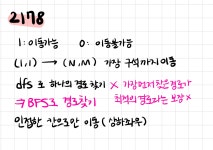 2178
1: 이동가능 0: 이동불가능
(1,1) → (N,M) 가장 구석까지 이동
dfs 로 하나의 경로 찾기 X 가장 먼저 찾은 경로가
⇒ BPS로 경로찾기 최적의 경로라는 보장 X
인접한 칸으로만 이동 (상하좌우)